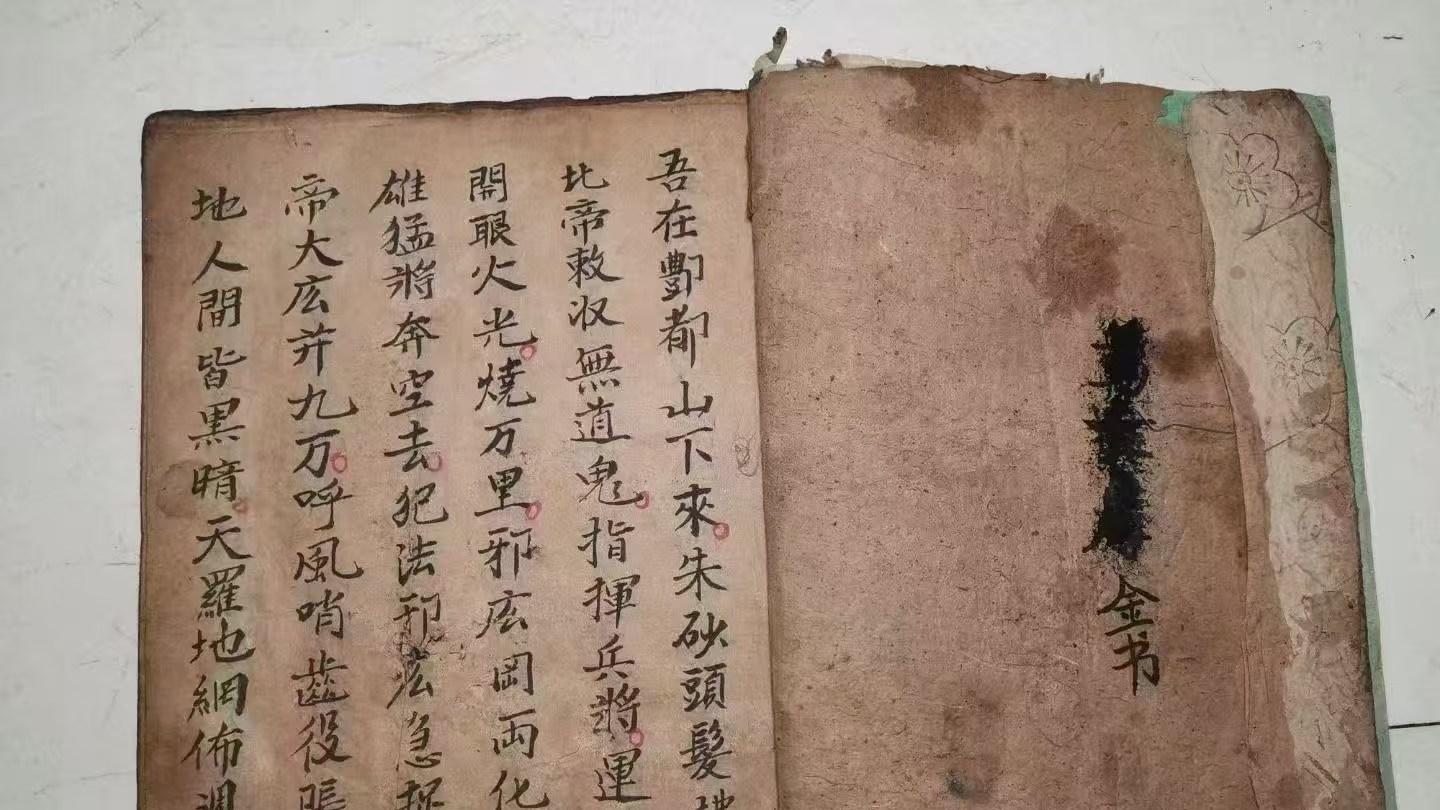 金书
吾在酆都山下來朱砂頭髮
北帝敕収無道鬼指揮兵將運
開眼火光燒万里邪庅罔両化
雄猛將奔空去犯法邪庅急捉
帝大庅并九万呼風哨齒役
地人間皆黒暗天羅地網佈